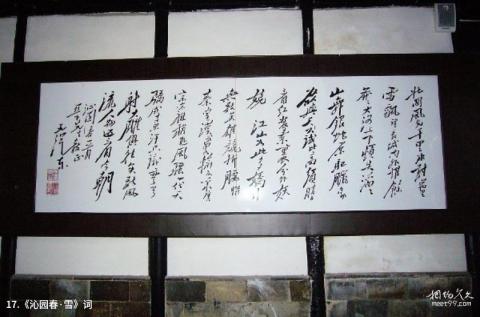 北国风光千里冰封万里
雪飘望长城内外惟余
莽莽大河上下顿失滔滔
山舞银蛇原驰腊象
欲与天公试比高须晴
日看红装素裹分外妖
娆江山如此多娇引
无数英雄竞折腰惜
秦皇汉武略输文采唐宗
宋祖稍逊风骚一代天
骄成吉思汗只识弯弓
射大雕俱往矣数风
流人物还看今朝
沁园春
毛泽东
17.《沁园春·雪》词
相约久久
meet99.com